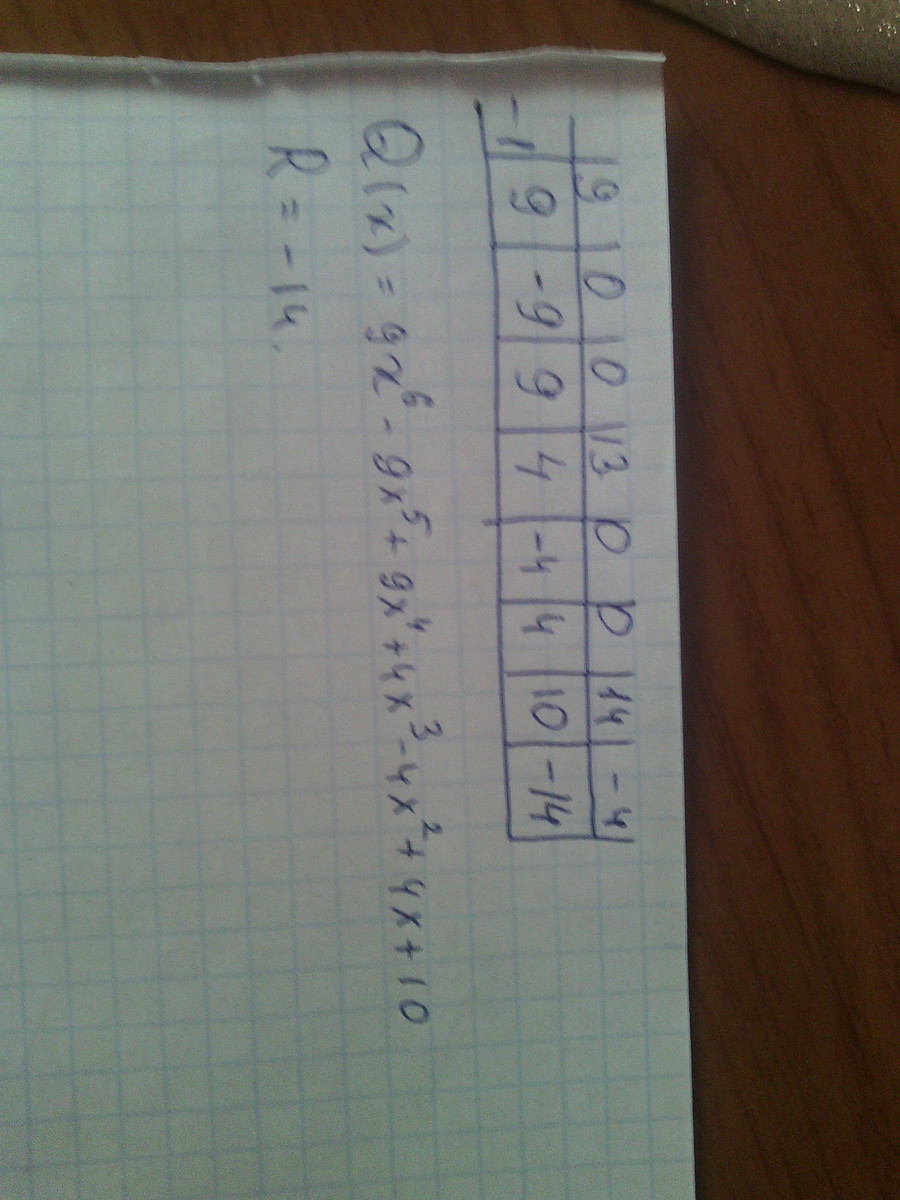 9 0 0 13 0 0 14 -4
-1 9 -9 9 4 -4 4 10 -14
Q(x) = 9x⁶ - 9x⁵ + 9x⁴ + 4x³ - 4x² + 4x + 10
R = -14.